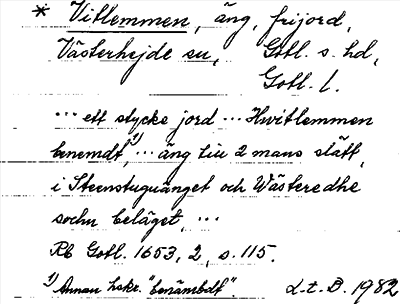 * Vitlemmen, äng, frijord,
Västerhejde sn, Gotl. s. hd,
Gotl. l.
… ett stycke jord … Hwitlemmen
benemdt,¹⁾ … äng till 2 mans slätt,
i Steenstuguänget och Wästeredhe
sochn beläget, …
Rb Gotl. 1653, 2, s. 115.
¹⁾ Annan hskr. "benämbdt". L.t.B. 1982